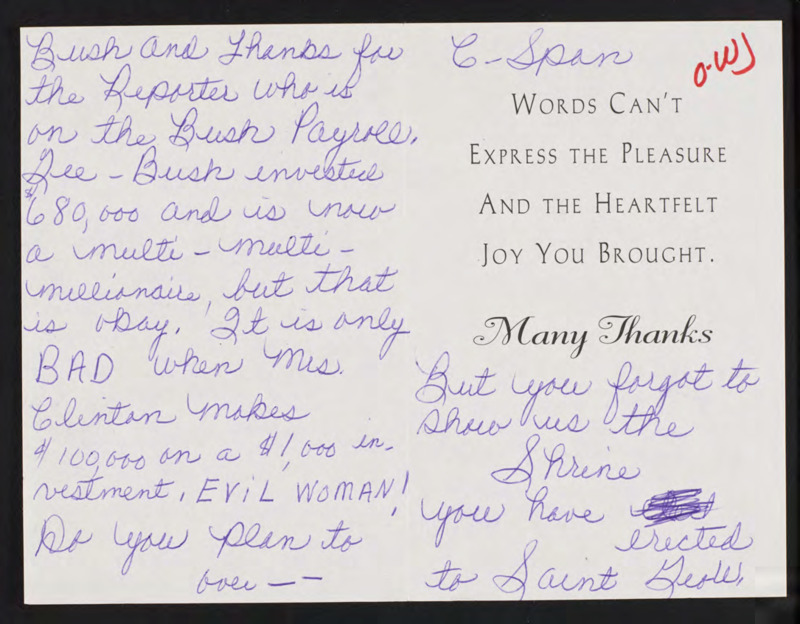 Bush and Thanks for
the Reporter who is
on the Bush Payroll.
Gee - Bush invested
$680,000 and is now
a multi - multi -
millionaire, but that
is okay. It is only
BAD when Mrs.
Clinton makes
$100,000 on a $1,000 in-
vestment, EViL WOMAN!
Do you plan to
over --
C-Span
O-WJ
WORDS CAN'T
EXPRESS THE PLEASURE
AND THE HEARTFELT
JOY YOU BROUGHT.
Many Thanks
But you forgot to
show us the
Shrine
you have
erected
to Saint Geo W.